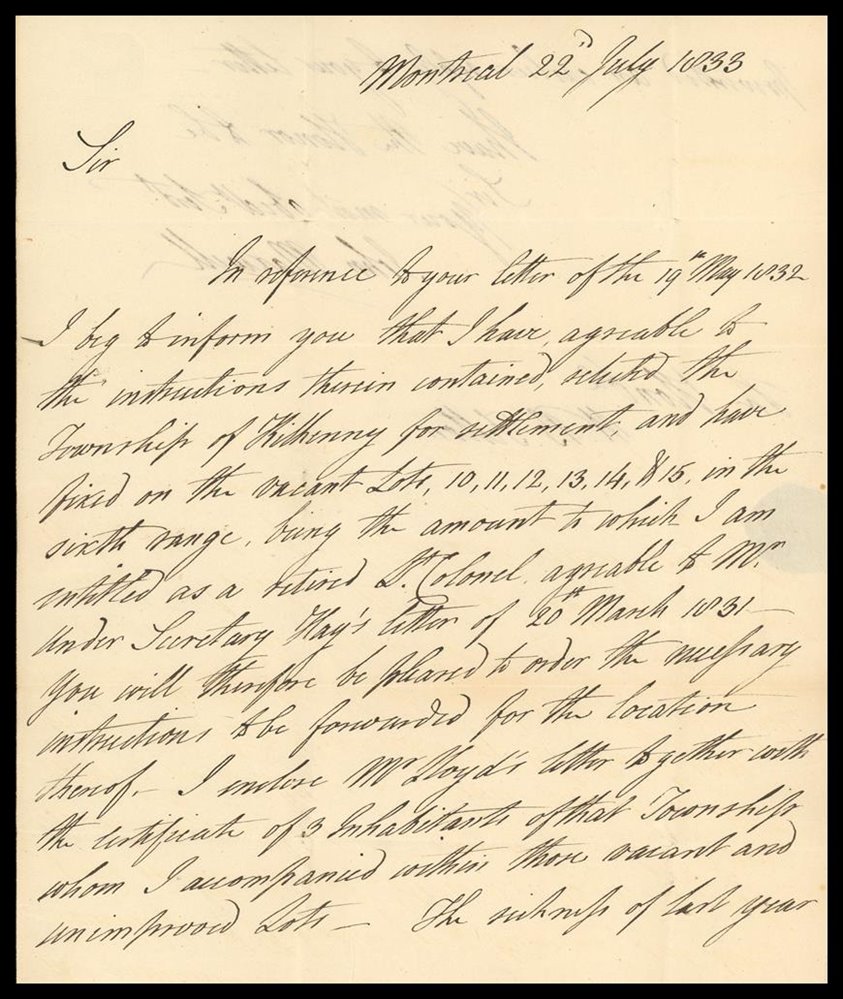 Montreal 22d July 1833
Sir
In reference to your letter of the 19th May 1832
I beg to inform you that I have, agreable to
the instructions therein contained, selected the
Township of Kilkenny for settlement, and have
fixed on the vacant Lots, 10, 11, 12, 13, 14, & 15, in the
sixth range, being the amount to which I am
entitled as a retired Lt. Colonel, agreable to Mr.
Under Secretary Hay's letter of 20th March 1831 —
You will therefore be pleased to order the necessary
instructions to be forwarded for the location
thereof. — I enclose Mr Lloyd's letter together with
the certificate of 3 Inhabitants of that Township
whom I accompanied within those vacant and
unimproved Lots — The sickness of last year